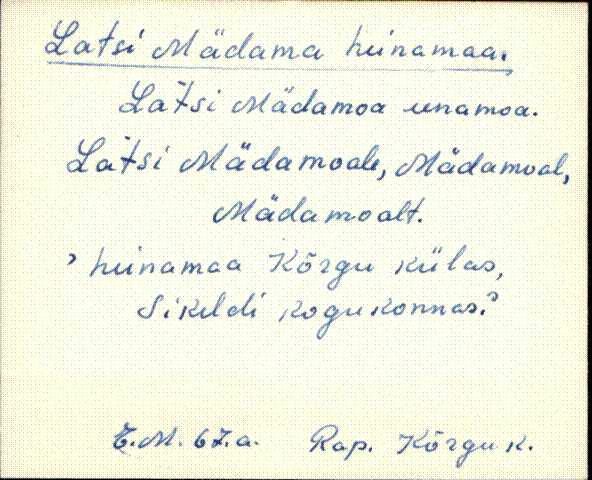 Latsi Mädama heinamaa.
Lat̄si Mädamoa einamoa.
Lat̄si Mädamoale, Mädamoal,
Mädamoalt.
’ heinamaa Kõrgu külas,
Sikeldi kogukonnas.’
E.M. 67.a. Rap. Kõrgu k.